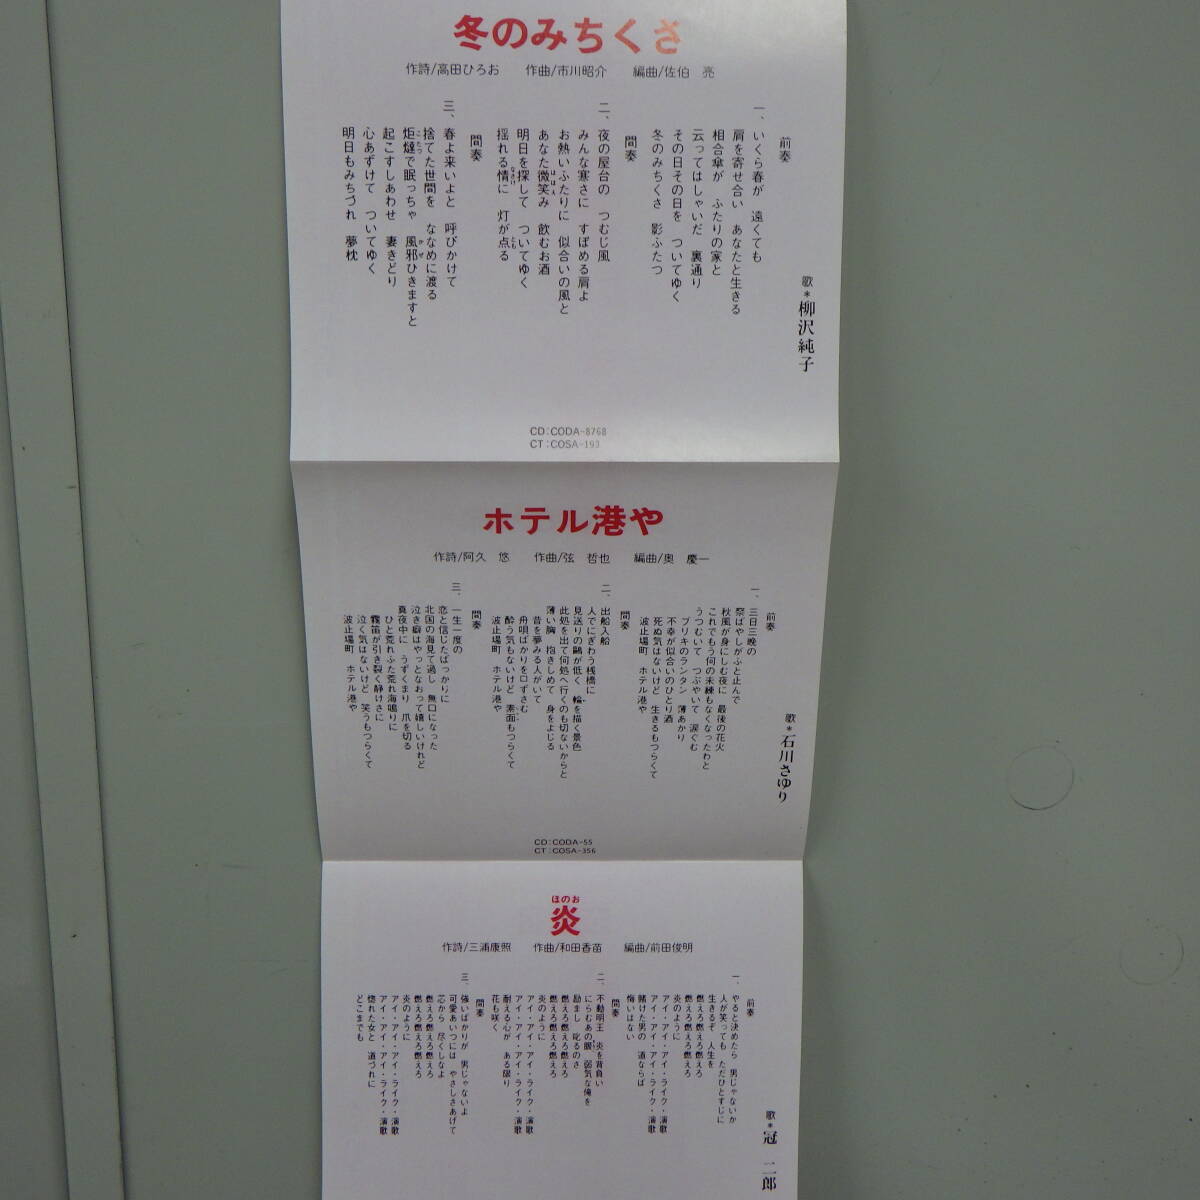 冬のみちくさ
作詩/高田ひろお 作曲/市川昭介 編曲/佐伯 亮
歌*柳沢純子
前奏
一、いくら春が 遠くても
肩を寄せ合い あなたと生きる
相合傘が ふたりの家と
云ってはしゃいだ 裏通り
その日その日を ついてゆく
冬のみちくさ 影ふたつ
間奏
二、夜の屋台の つむじ風
みんな寒さに すぼめる肩よ
お熱いふたりに 似合いの風と
あなた微笑み 飲むお酒
明日を探して ついてゆく
揺れる情に 灯が点る
間奏
三、春よ来いよと 呼びかけて
捨てた世間を ななめに渡る
炬燵で眠っちゃ 風邪ひきますと
起こすしあわせ 妻きどり
心あずけて ついてゆく
明日もみちづれ 夢枕
CD:CODA-8768
CT:COSA-193
ホテル港や
作詩/阿久 悠 作曲/弦 哲也 編曲/奥 慶一
歌*石川さゆり
前奏
一、三日三晩の
祭ばやしがふと止んで
秋風が身にしむ夜に 最後の花火
これでもう何の未練もなくなったわと
うつむいて つぶやいて 涙ぐむ
ブリキのランタン 薄あかり
不幸が似合いのひとり酒
死ぬ気はないけど 生きるもつらくて
波止場町 ホテル港や
間奏
二、出船入船
人でにぎわう桟橋に
見送りの鷗が低く 輪を描く景色
此処を出て何処へ行くのも切ないからと
薄い胸 抱きしめて 身をよじる
昔を夢みる人がいて
舟唄ばかりを口ずさむ
酔う気もないけど 素面もつらくて
波止場町 ホテル港や
間奏
三、一生一度の
恋と信じたばっかりに
北国の海見て過し 無口になった
泣き癖はやっとなおって嬉しいけれど
真夜中に うずくまり 爪を切る
ひと荒れふた荒れ海鳴りに
霧笛が引き裂く静けさに
泣く気はないけど 笑うもつらくて
波止場町 ホテル港や
CD:CODA-55
CT:COSA-356
ほのお
炎
作詩/三浦康照 作曲/和田香苗 編曲/前田俊明
歌*冠 二郎
前奏
一、やると決めたら 男じゃないか
人が笑っても ただひとすじに
生きるぞ 人生を
燃えろ燃えろ燃えろ
燃えろ燃えろ燃えろ
炎のように
アイ・アイ・アイ・ライク・演歌
アイ・アイ・アイ・ライク・演歌
賭けた男の 道ならば
悔いはない
間奏
二、不動明王 炎を背負い
にらむあの眼 弱気な俺を
励まし 叱るのさ
燃えろ燃えろ燃えろ
燃えろ燃えろ燃えろ
炎のように
アイ・アイ・アイ・ライク・演歌
アイ・アイ・アイ・ライク・演歌
耐える心が ある限り
花も咲く
間奏
三、強いばかりが 男じゃないよ
可愛あいつには やさしさあげて
芯から 尽くしなよ
燃えろ燃えろ燃えろ
燃えろ燃えろ燃えろ
炎のように
アイ・アイ・アイ・ライク・演歌
アイ・アイ・アイ・ライク・演歌
惚れた女と 道づれに
どこまでも